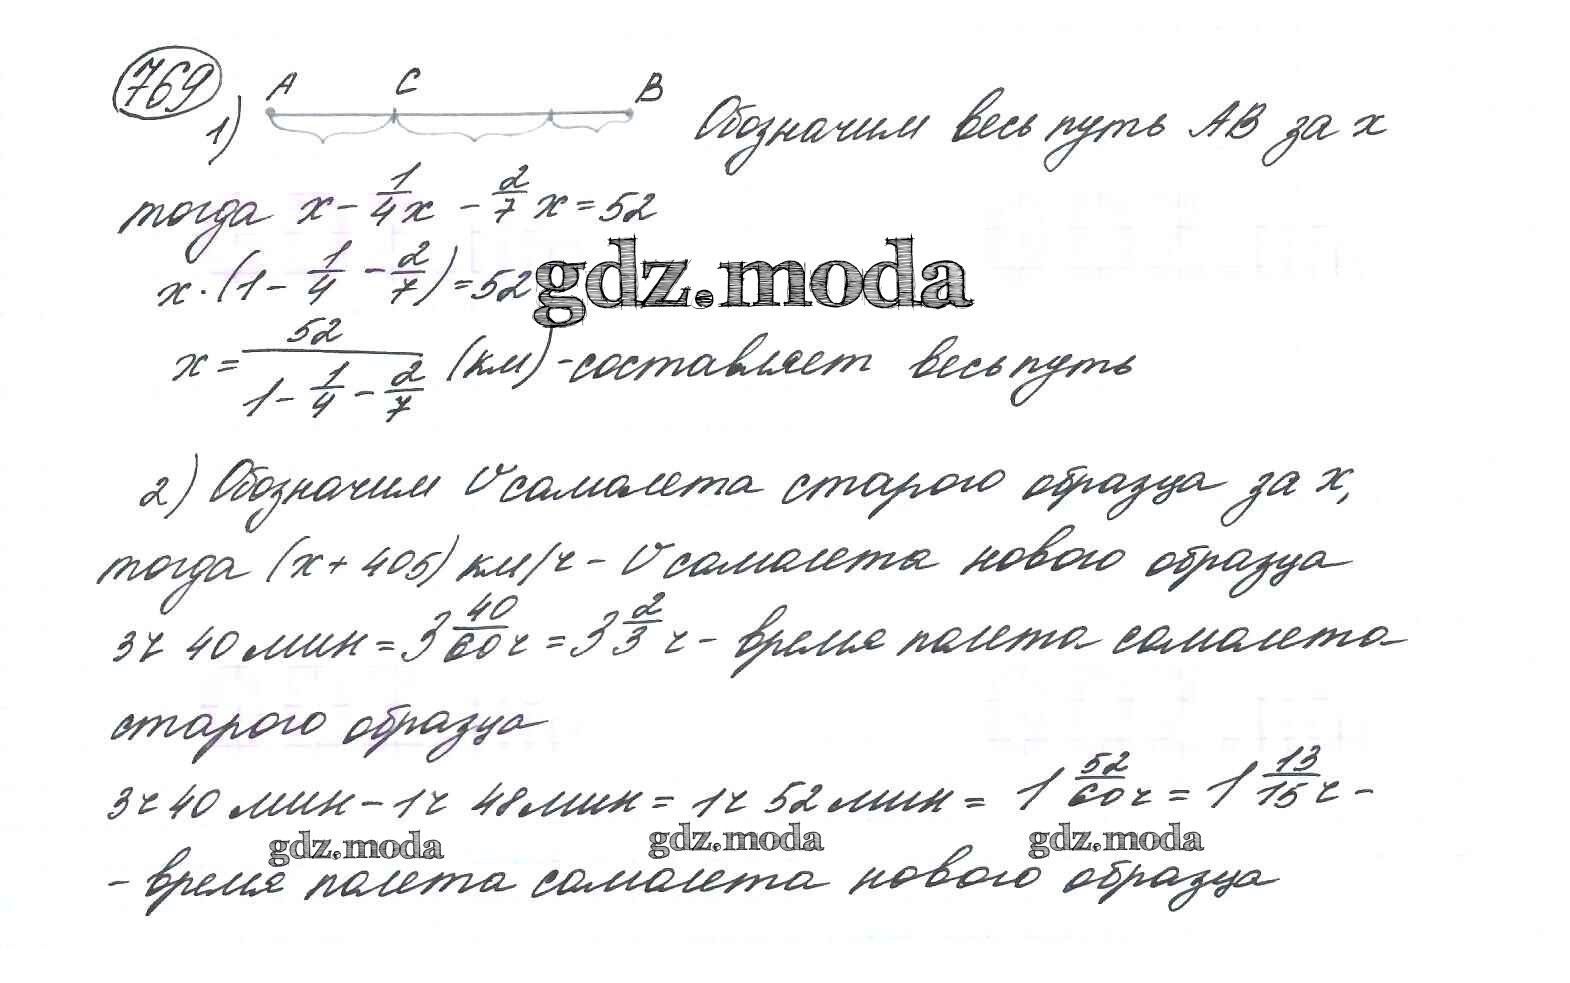 769
A C B
1) Обозначим весь путь AB за x
тогда x - 1/4 x - 2/7 x = 52
x · (1 - 1/4 - 2/7) = 52
gdz.moda
x = 52 / (1 - 1/4 - 2/7) (км) - составляет весь путь
2) Обозначим V самолета старого образца за x,
тогда (x + 405) км/ч - V самолета нового образца
3ч 40 мин = 3 40/60 ч = 3 2/3 ч - время полета самолета
старого образца
3ч 40 мин - 1ч 48 мин = 1ч 52 мин = 1 52/60 ч = 1 13/15 ч -
gdz.moda gdz.moda gdz.moda
- время полета самолета нового образца